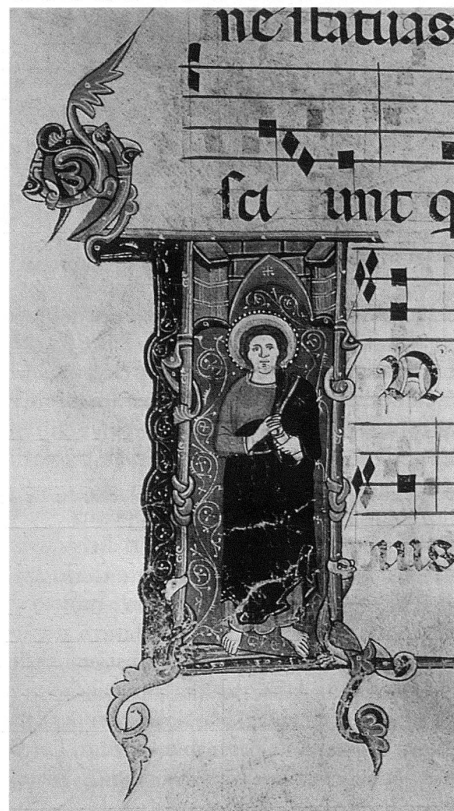 ne ſtatuas
ſci unt q
N